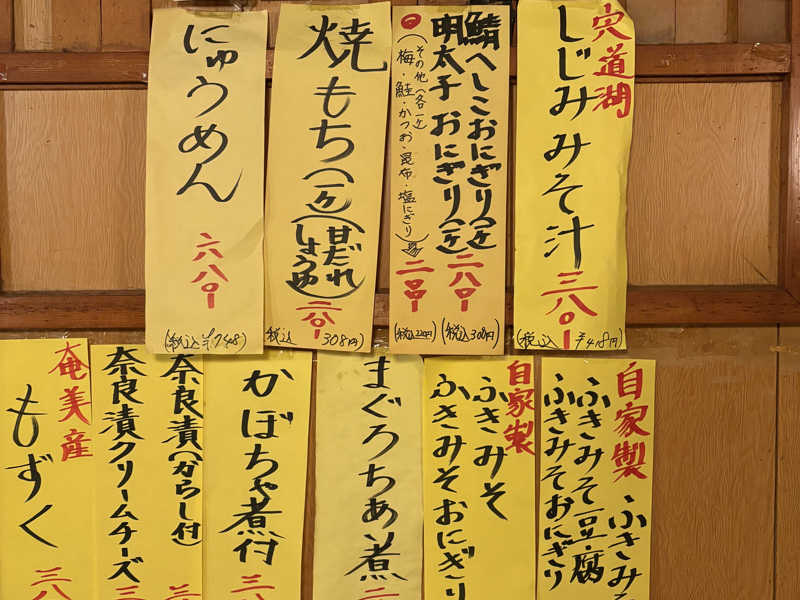 宍道湖
しじみみそ汁
三八〇
(税込 ¥418円)
鯖へしこおにぎり(一ヶ)
二八〇
(税込 308円)
明太子おにぎり(一ヶ)
その他(各一ヶ)
(梅・鮭・かつお・昆布・塩にぎり)
二〇〇
(税込 220円)
焼もち(一ヶ)(甘だれ しょうゆ)
二八〇
税込 308円)
にゅうめん
六八〇
(税込 ¥748)
自家製
ふきみそ
ふきみそ豆腐
ふきみそおにぎり
自家製
ふきみそ
ふきみそおにぎり
まぐろちあい煮
かぼちゃ煮付
奈良漬(からし付)
奈良漬クリームチーズ
奄美産
もずく
三八